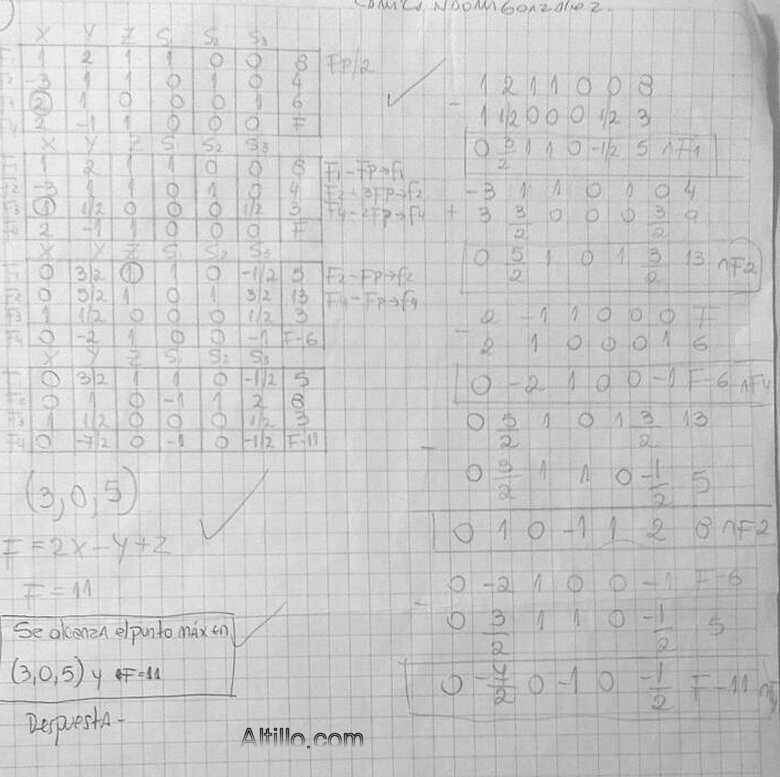 X Y Z S₁ S₂ S₃
1 2 1 1 0 0 8 Fp/2
-3 1 1 0 1 0 4
2 1 0 0 0 1 6
2 -1 1 0 0 0 F
X Y Z S₁ S₂ S₃
F1 1 2 1 1 0 0 8 F1-Fp→f1
F2 -3 1 1 0 1 0 4 F2+3Fp→f2
F3 1 1/2 0 0 0 1/2 3 F4-2Fp→f4
F4 2 -1 1 0 0 0 F
X Y Z S₁ S₂ S₃
F1 0 3/2 1 1 0 -1/2 5 F2-Fp→f2
F2 0 5/2 1 0 1 3/2 13 F4-Fp→f4
F3 1 1/2 0 0 0 1/2 3
F4 0 -2 1 0 0 -1 F-6
X Y Z S₁ S₂ S₃
0 3/2 1 1 0 -1/2 5
0 1 0 -1 1 2 8
1 1/2 0 0 0 1/2 3
F4 0 -7/2 0 -1 0 -1/2 F-11
(3,0,5)
F=2X-Y+Z
F=11
Se alcanza el punto máx en
(3,0,5) y F=11
Respuesta-
1 2 1 1 0 0 8
- 1 1/2 0 0 0 1/2 3
0 3/2 1 1 0 -1/2 5 nF1
-3 1 1 0 1 0 4
+ 3 3/2 0 0 0 3/2 9
0 5/2 1 0 1 3/2 13 nF2
- 2 -1 1 0 0 0 F
2 1 0 0 0 1 6
0 -2 1 0 0 -1 F-6 nF4
0 5/2 1 0 1 3/2 13
- 0 3/2 1 1 0 -1/2 5
0 1 0 -1 1 2 8 nF2
0 -2 1 0 0 -1 F-6
- 0 3/2 1 1 0 -1/2 5
0 -7/2 0 -1 0 -1/2 F-11 nF4
Altillo.com